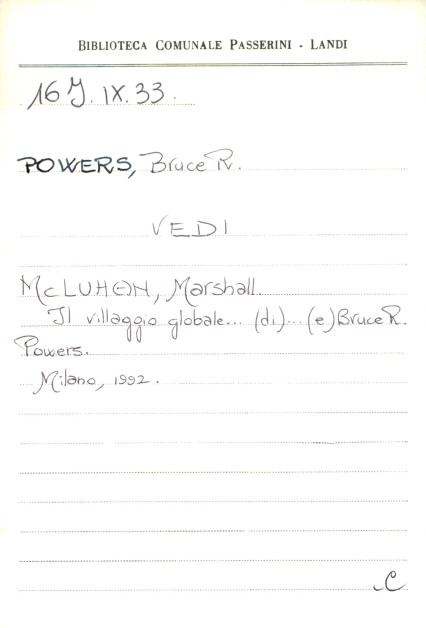 BIBLIOTECA COMUNALE PASSERINI - LANDI
16 J. IX. 33.
POWERS, Bruce R.
VEDI
McLUHAN, Marshall.
Il villaggio globale... (di)... (e) Bruce R.
Powers.
Milano, 1992.
C